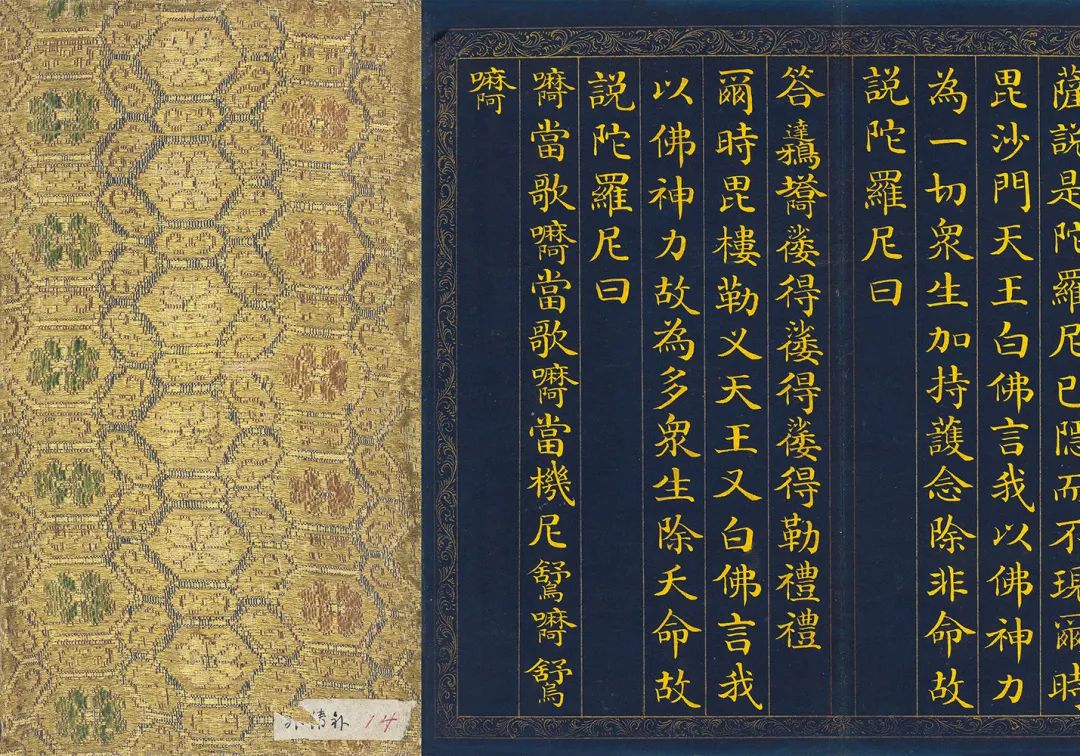 薩說是陀羅尼已隱而不現爾時
毘沙門天王白佛言我以佛神力
為一切衆生加持護念除非命故
説陀羅尼曰
答得得得勒禮禮
爾時毘樓勒义天王又白佛言我
以佛神力故為多衆生除夭命故
説陀羅尼曰
嘛阿當歌嘛阿當歌嘛阿當機尼嘛阿
嘛阿
补 14